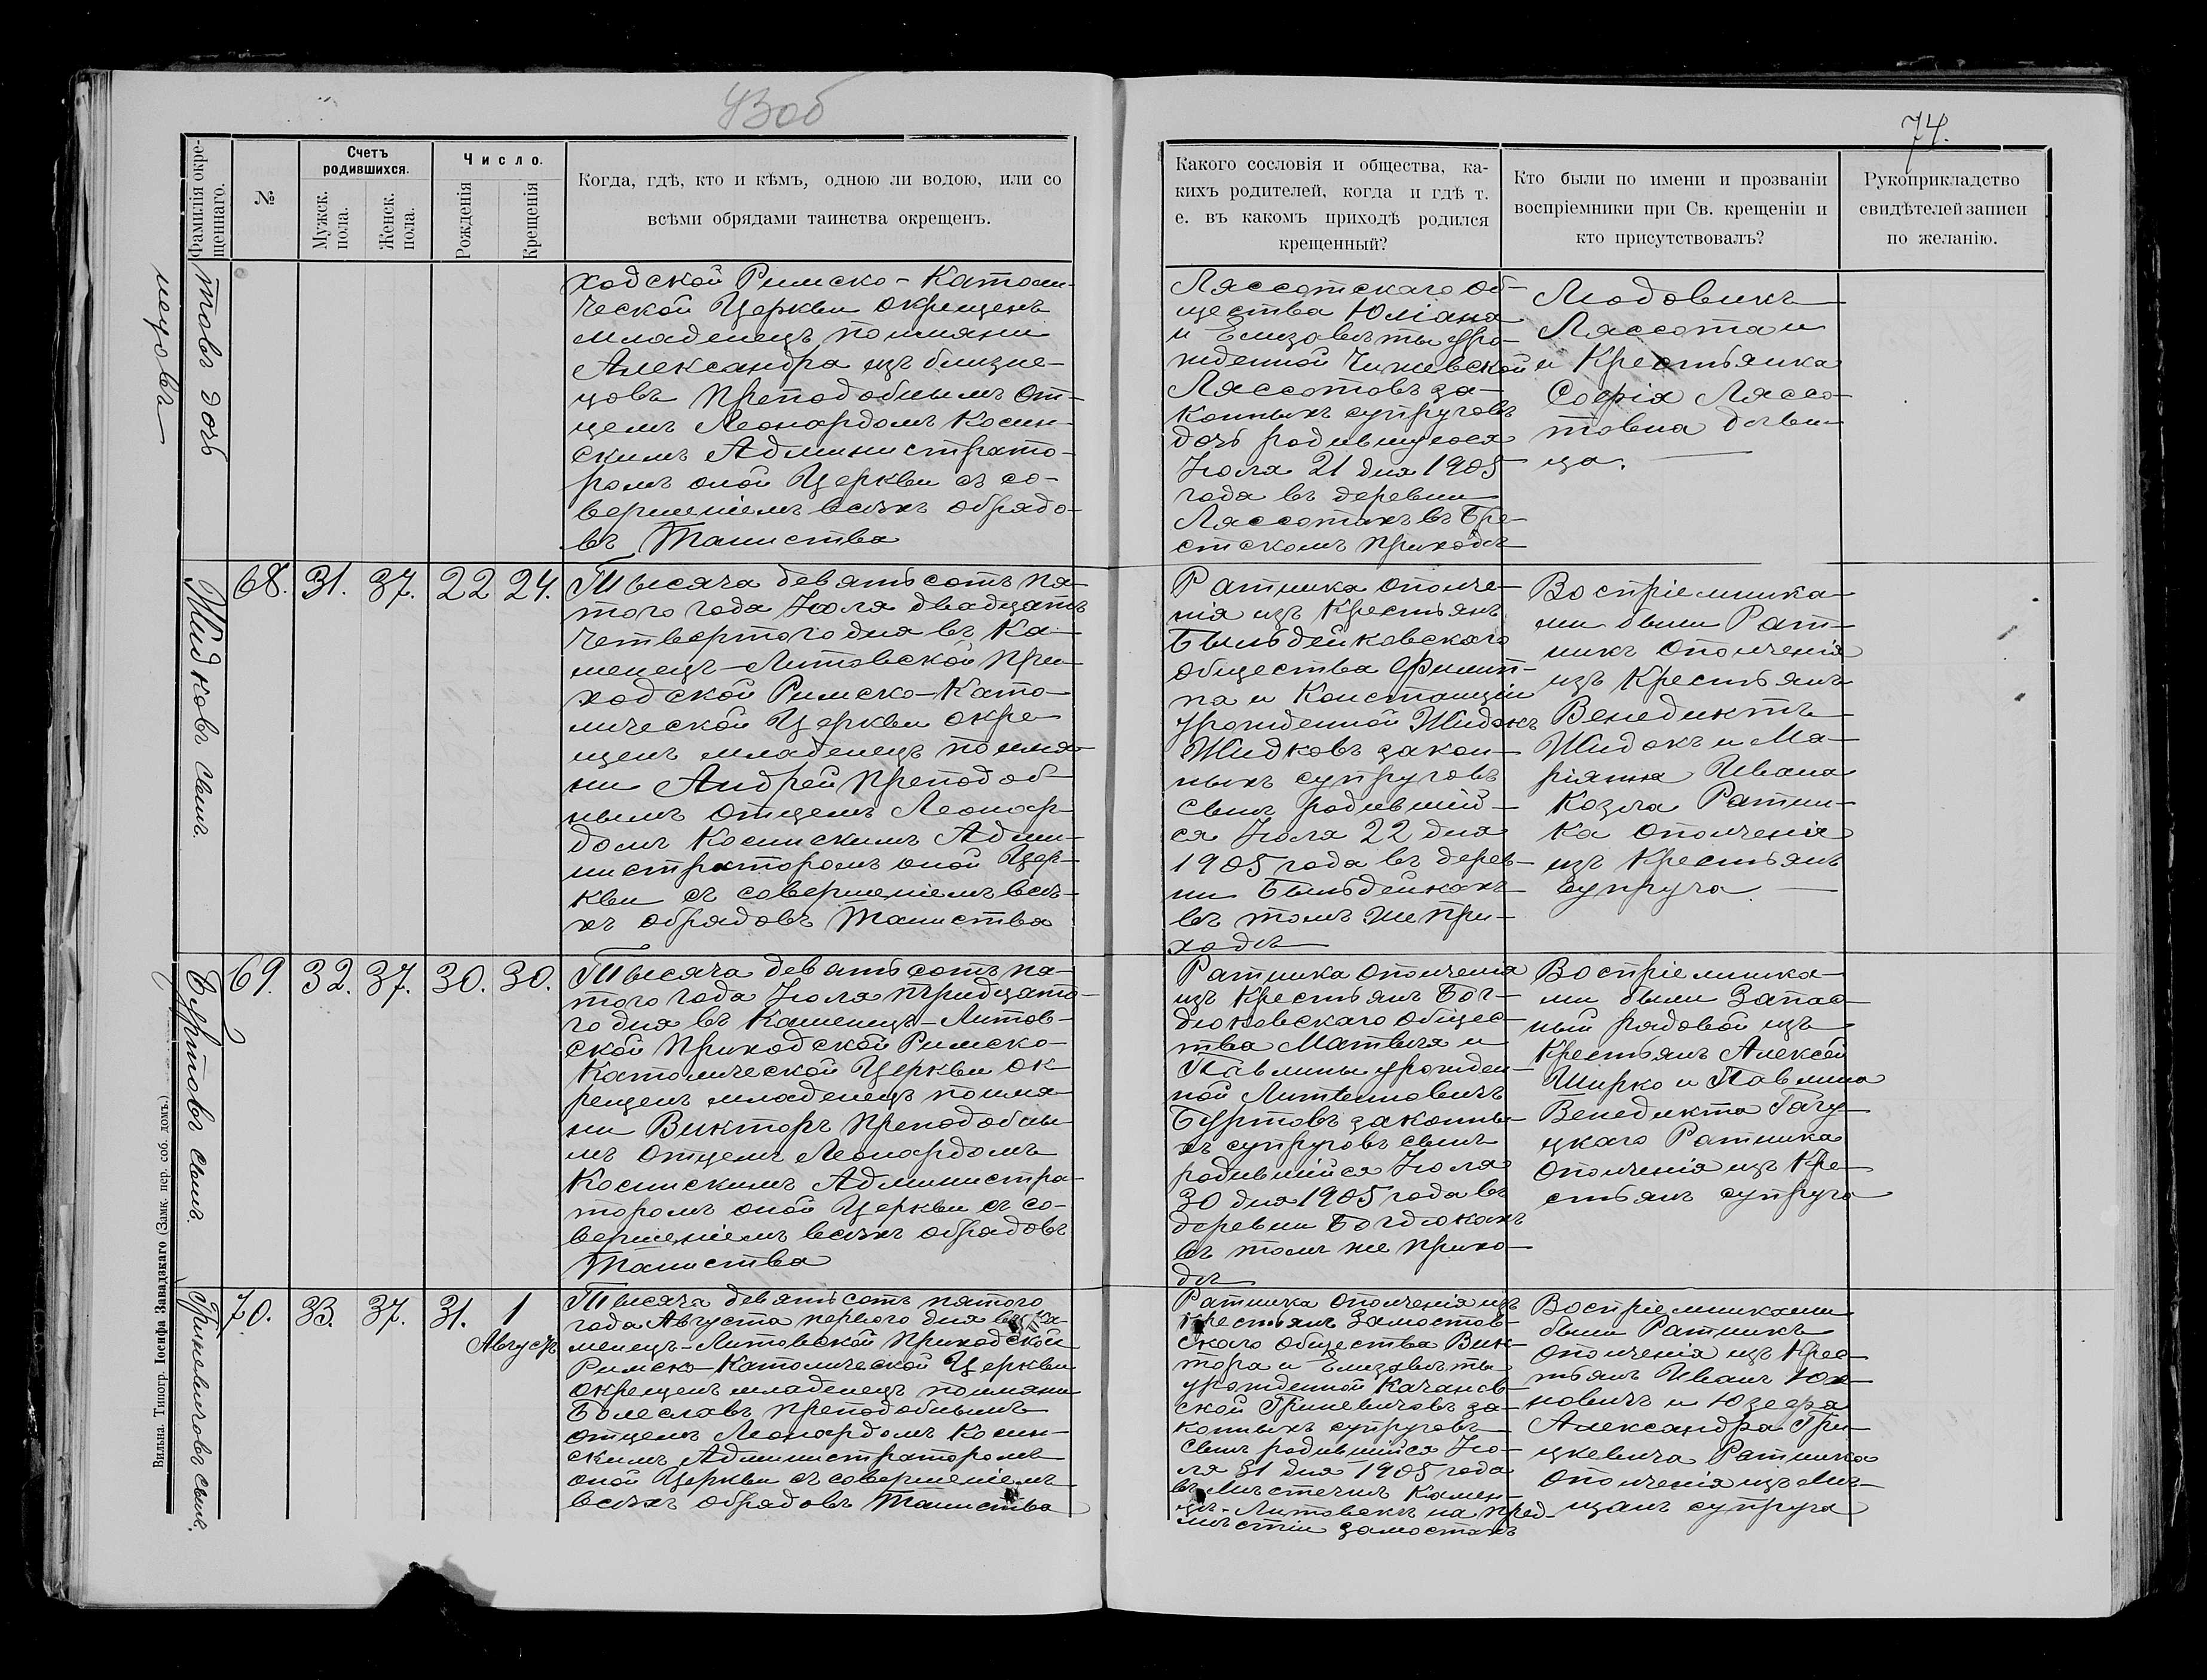 43об
74.
Фамилія окре-
щеннаго.
№
Счетъ
родившихся.
Мужск.
пола.
Женск.
пола.
Число.
Рожденія
Крещенія
Когда, гдѣ, кто и кѣмъ, одною ли водою, или со
всѣми обрядами таинства окрещенъ.
Какого сословія и общества, ка-
кихъ родителей, когда и гдѣ т.
е. въ какомъ приходѣ родился
крещенный?
Кто были по имени и прозванію
воспріемники при Св. крещеніи и
кто присутствовалъ?
Рукоприкладство
свидѣтелей записи
по желанію.
товъ дочь
ходской Римско-Католи-
ческой Церкви окрещенъ
младенецъ по имяни
Александра изъ близне-
цовъ Преподобнымъ От-
цемъ Леонардомъ Косин-
скимъ Администрато-
ромъ оной Церкви съ со-
вершеніемъ всѣхъ обрядо-
въ Таинства
Ляссотскаго об-
щества Юліана
и Елизаветы уро-
жденной
Ляссотовъ за-
конныхъ супруговъ
дочь родившуюся
Іюля 21 дня 1905
года въ деревни
Ляссотахъ въ Бре-
стскомъ приходѣ
Людовикъ
Ляссота и
и Крестьянка
Софія Ляссо-
товна дѣви-
ца.
Жидковъ сынъ.
68. 31. 37. 22 24.
Тысяча девятьсотъ пя-
того года Іюля двадцать
четвертого дня въ Ка-
менецъ-Литовской При-
ходской Римско-Като-
лической Церкви окре-
щенъ младенецъ по имя-
ни Андрей Преподоб-
нымъ Отцемъ Леонар-
домъ Косинскимъ Адми-
нистраторомъ оной Цер-
кви съ совершеніемъ всѣ-
хъ обрядовъ Таинства
Ратника ополче-
нія изъ Крестьянъ
Быльдейковскаго
общества Филип-
па и Констанціи
урожденной Жидокъ
Жидковъ закон-
ныхъ супруговъ
сынъ родивший-
ся Іюля 22 дня
1905 года въ дерев-
ни Быльдейкахъ
въ томъ же при-
ходѣ
Воспріемника-
ми были Рат-
никъ Ополченія
изъ Крестьянъ
Венедиктъ
Жидокъ и Ма-
ріанна Ивана
Козла Ратни-
ка ополченія
изъ Крестьянъ
супруга
Буртовъ сынъ.
69. 32. 37. 30. 30.
Тысяча девятьсотъ пя-
того года Іюля тридцато-
го дня въ Каменецъ-Литов-
ской Приходской Римско-
Католической Церкви ок-
рещенъ младенецъ по имя-
ни Викторъ Преподобны-
мъ Отцемъ Леонардомъ
Косинскимъ Администра-
торомъ оной Церкви съ со-
вершеніемъ всѣхъ обрядовъ
Таинства
Ратника ополченія
изъ Крестьянъ Бог-
дюковскаго общес-
тва Матвѣя и
Павлины урожден-
ной Литвиновичъ
Буртовъ законны-
хъ супруговъ сынъ
родившийся Іюля
30 дня 1905 года въ
деревни Богдюкахъ
въ томъ же прихо-
дѣ
Воспріемника-
ми были Запас-
ный рядовой изъ
Крестьянъ Алексѣй
Ширко и Павлина
Венедикта
Ратника
Ополченія изъ Кре-
стьянъ супруга
Гриневичовъ сынъ.
70. 33. 37. 31. 1
Августъ
Тысяча девятьсотъ пятого
года Августа перваго дня въ Ка-
менецъ-Литовской Приходской
Римско-Католической Церкви
окрещенъ младенецъ по имяни
Болеславъ преподобнымъ
отцемъ Леонардомъ Косин-
скимъ Администраторомъ
оной Церкви съ совершеніемъ
всѣхъ обрядовъ Таинства
Ратника Ополченія изъ
крестьянъ Замостов-
скаго общества Вик-
тора и Елизаветы
урожденной Качанов-
ской Гриневичовъ за-
конныхъ супруговъ
сынъ родившийся Ію-
ля 31 дня 1905 года
въ мѣстечкѣ Камен-
цѣ-Литовскъ на пред-
мѣстіи Замостахъ
Воспріемниками
были Ратникъ
ополченія изъ Крес-
тьянъ Иванъ Юх-
новичъ и Юзефа
Александра Гри-
цкевича Ратника
Ополченія изъ Мѣ-
щанъ супруга
Вильна. Типогр. Іосифа Завадзкаго (Замк. пер. соб. домъ.)